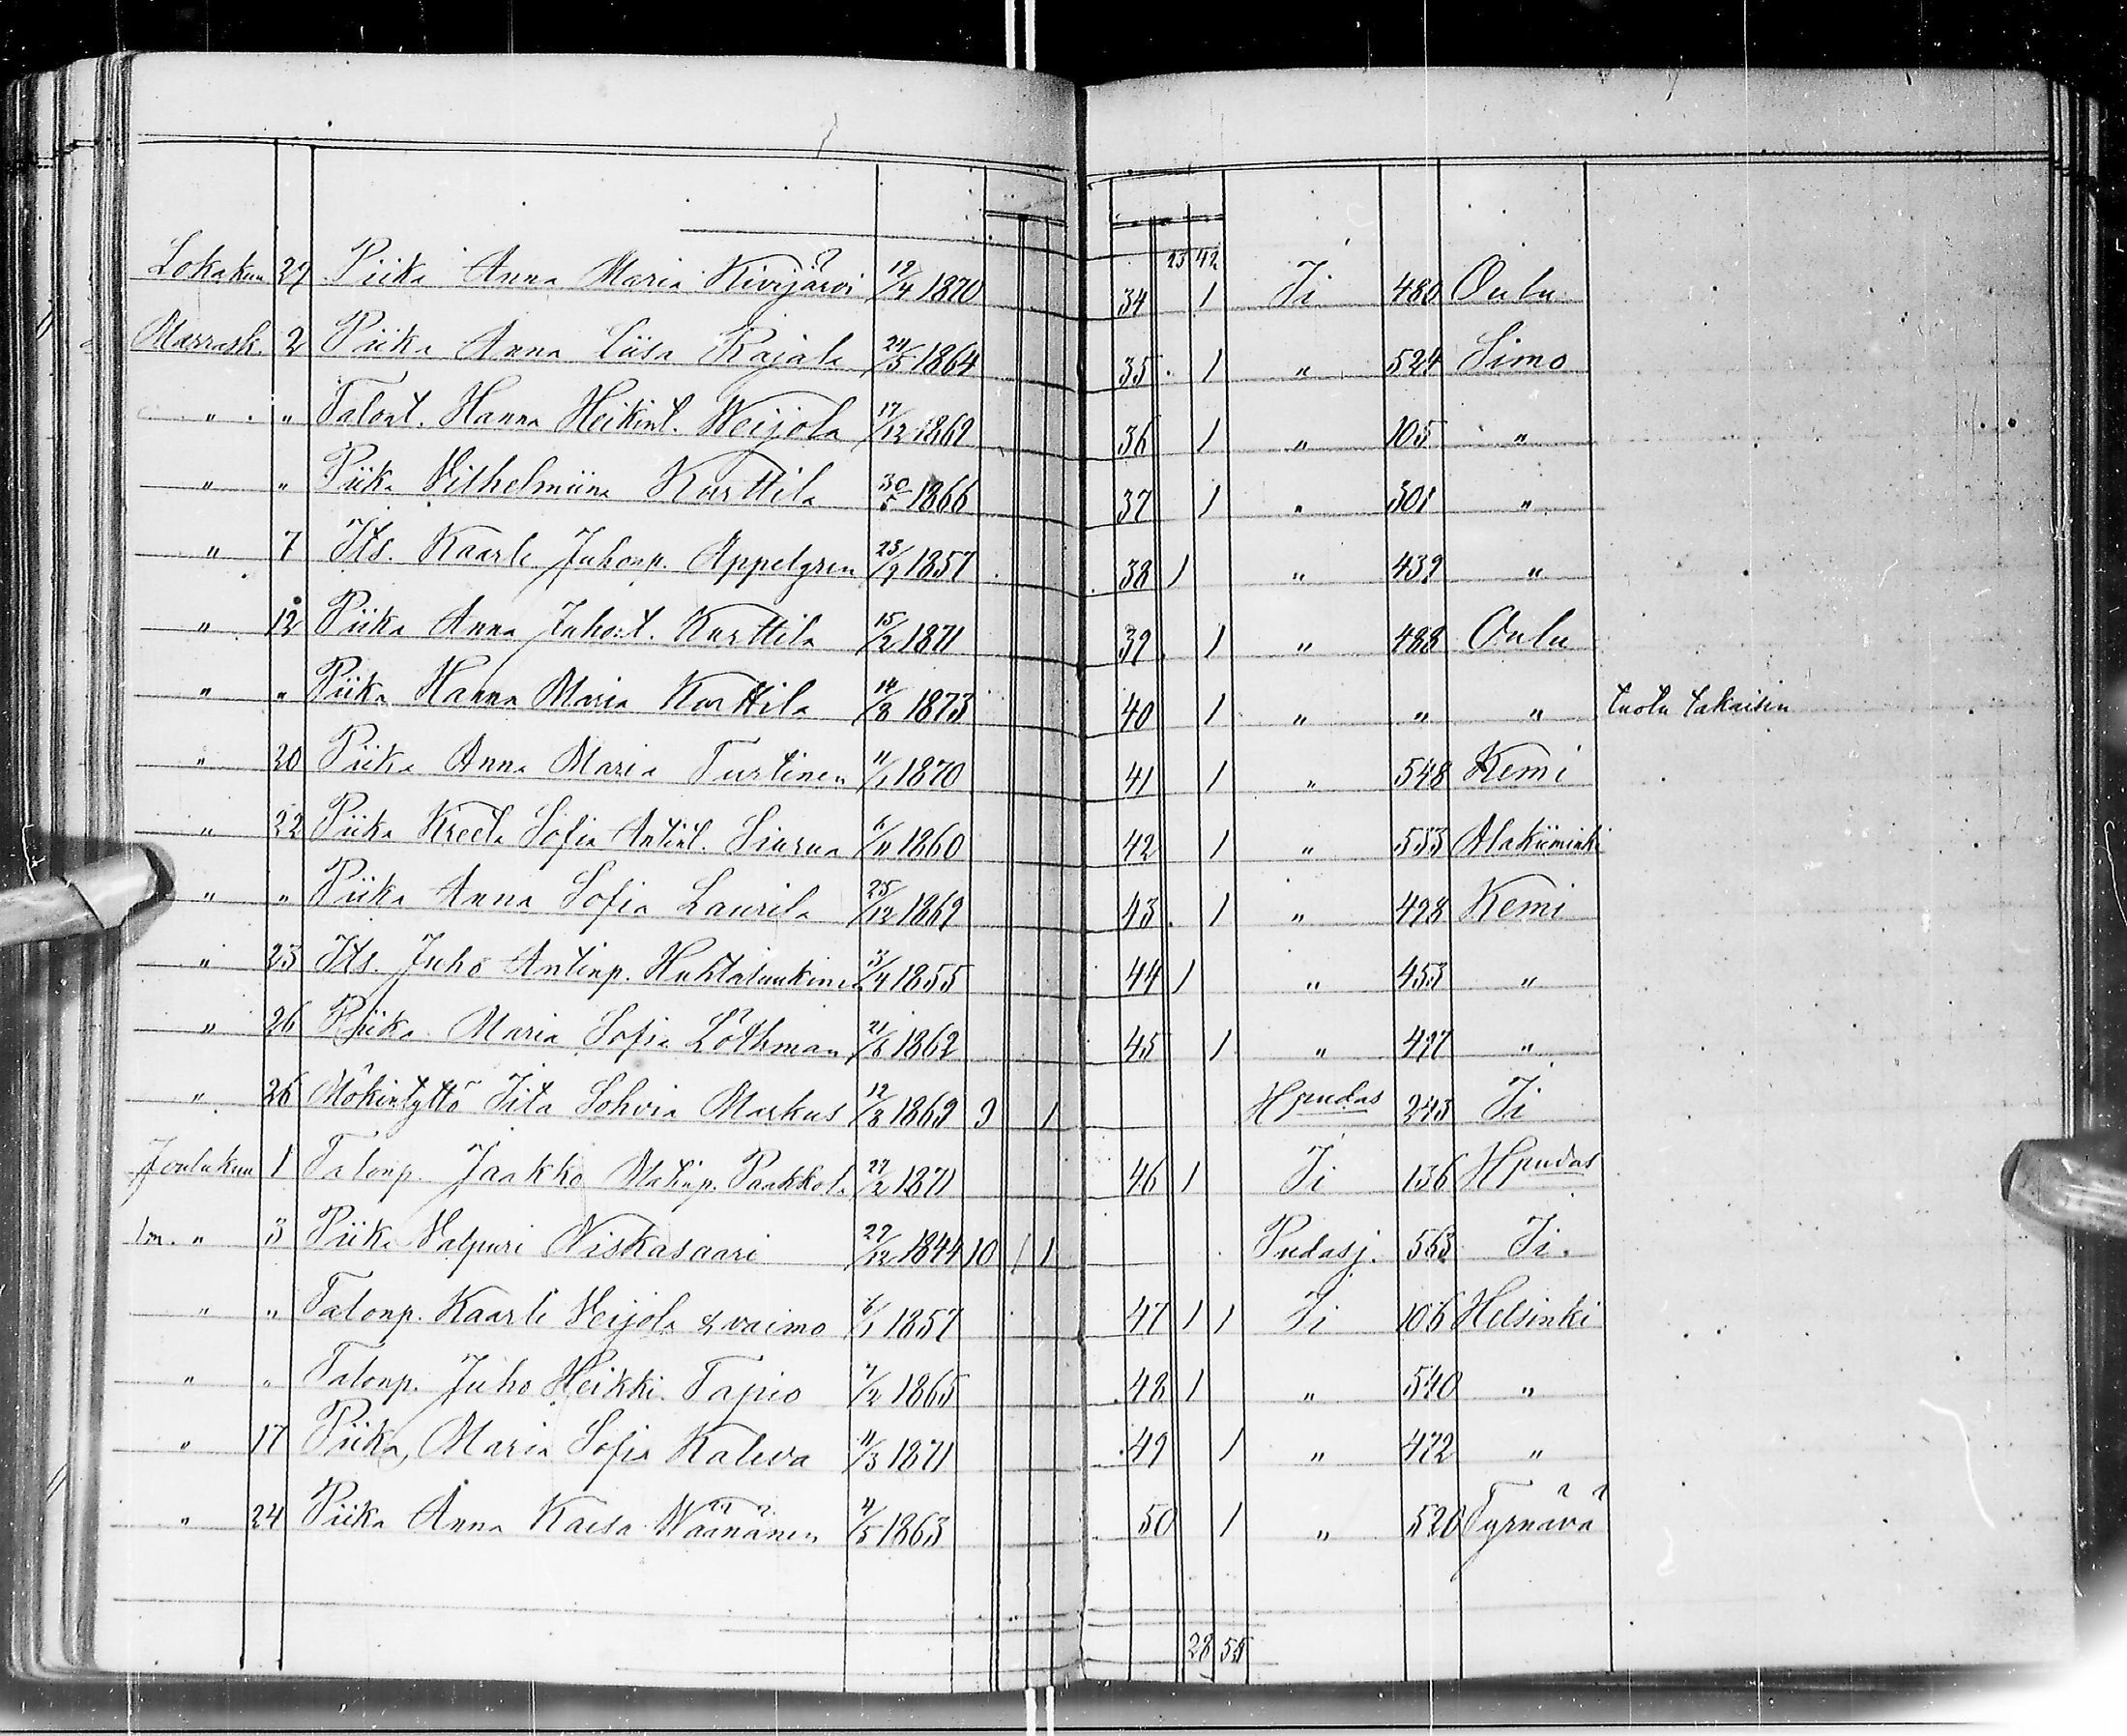 23 42
Lokakuu 27 Piika Anna Maria Kivijärvi 19/4 1870 34 1 Ii 480 Oulu
Marrask. 2 Piika Anna Liisa Rajala 24/5 1864 35 1 " 524 Simo
" " Talont. Hanna Heikint. Weijola 17/12 1869 36 1 " 105 "
" " Piika Vilhelmiina Kurttila 30/5 1866 37 1 " 301 "
" 7 Its. Kaarle Juhonp. Appelgren 23/9 1857 38 1 " 439 "
" 12 Piika Anna Juhont. Kurttila 15/2 1871 39 1 " 488 Oulu
" " Piika Hanna Maria Kurttila 14/8 1873 40 1 " " " tuotu takaisin
" 20 Piika Anna Maria Turtinen 11/1 1870 41 1 " 548 Kemi
" 22 Piika Kreeta Sofia Antint. Siurua 6/11 1860 42 1 " 533 Alakiiminki
" " Piika Anna Sofia Laurila 25/12 1869 43 1 " 498 Kemi
" 23 Its. Juho Antinp. Huhtalaukinen 3/4 1855 44 1 " 453 "
" 26 Piika Maria Sofia Löthman 21/6 1862 45 1 " 497 "
" 26 Mökintyttö Iita Sohvia Markus 12/8 1869 9 1 Hpudas 243 Ii
Joulukuu 1 Talonp. Jaakko Matinp. Paakkola 22/2 1871 46 1 Ii 136 Hpudas
" 3 Piika Valpuri Niskasaari 22/12 1844 10 1 Pudasj. 563 Ii.
" " Talonp. Kaarle Veijola & vaimo 6/1 1857 47 1 1 Ii 106 Helsinki
" " Talonp. Juho Heikki Tapio 7/2 1865 48 1 " 540 "
" 17 Piika Maria Sofia Kaleva 11/3 1871 49 1 " 472 "
" 24 Piika Anna Kaisa Wäänänen 4/5 1863 50 1 " 520 Tyrnävä
28 55